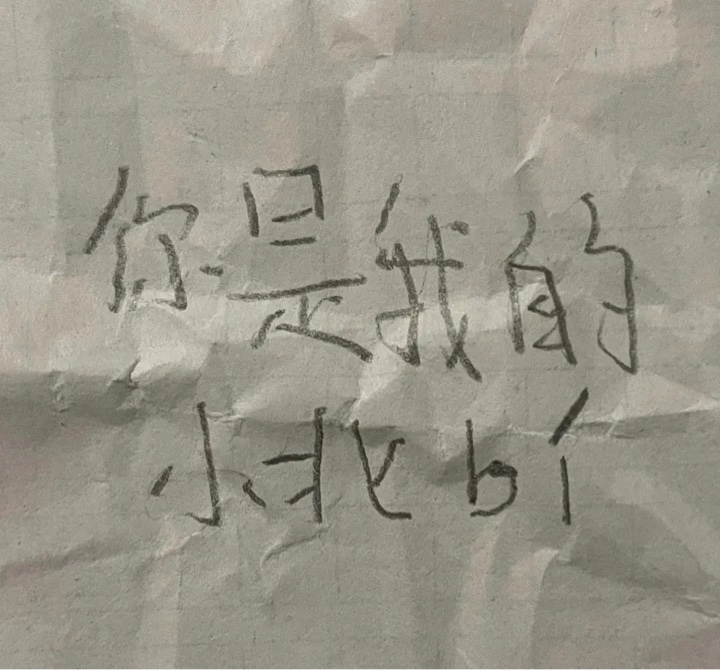 你是我的
小北bí